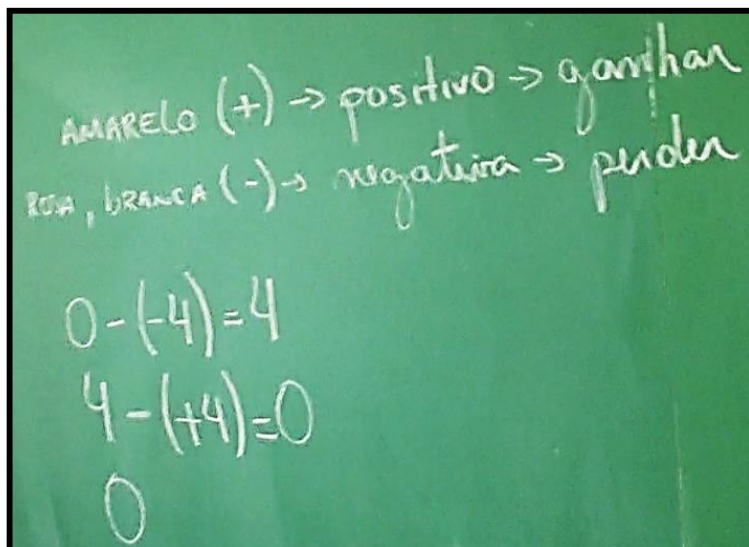 AMARELO (+) → positivo → ganhar
ROSA, BRANCA (-) → negativa → perder
0 - (-4) = 4
4 - (+4) = 0
0